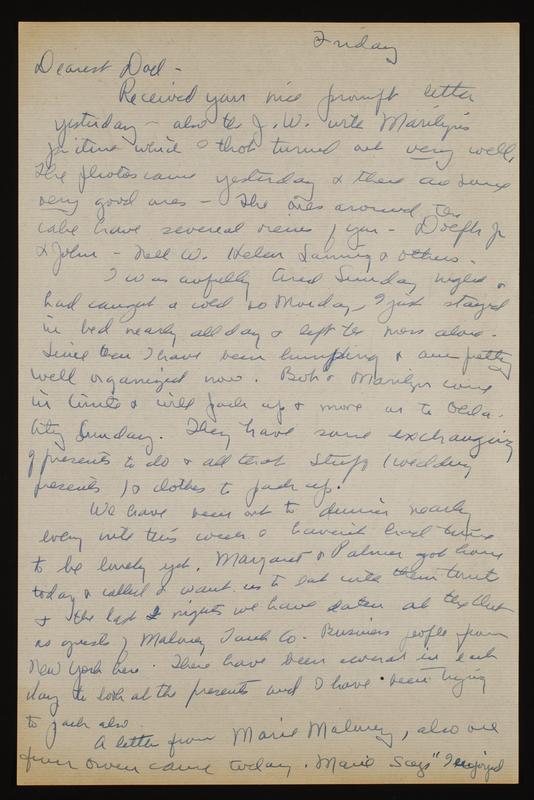 Friday
Dearest Dad -
Received your nice prompt letter
yesterday - also the J. W. with Marilyn's
picture which I thot turned out very well.
The photos came yesterday & there are some
very good ones - The ones around the
cake have several views of you - Jr
& John - Nell W. Helen & others.
I was awfully tired Sunday night &
had caught a cold so Monday I just stayed
in bed nearly all day & left the mess alone.
Since then I have been & am pretty
well organized now. Bob & Marilyn come
in tonite & will pack up & move on to Okla.
City Sunday. They have some exchanging
of presents to do & all that stuff (wedding
presents) & clothes to pack up.
We have been out to dinner nearly
every nite this week & haven't had time
to be lonely yet. Margaret & Palmer got home
today & called & want us to eat with them tonit
& the last 2 nights we have eaten at the Club
as guests of Maloney Tank Co. Business people from
New York here. There have been several in each
day to look at the presents and I have been trying
to pack also.
A letter from Marie Maloney, also one
from Owen came today. Marie says "I enjoyed